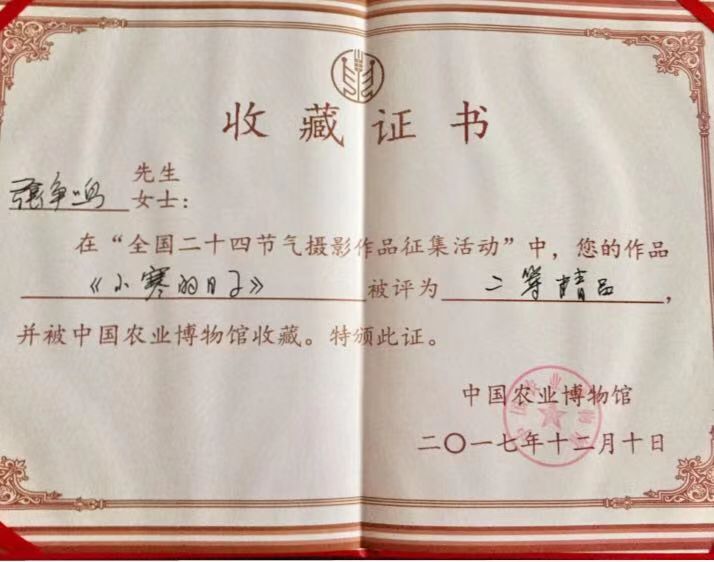 收藏证书
張争鸣 先生
女士：
在“全国二十四节气摄影作品征集活动”中，您的作品
《小寒的日子》被评为 二等精品，
并被中国农业博物馆收藏。特颁此证。
中国农业博物馆
二〇一七年十二月十日